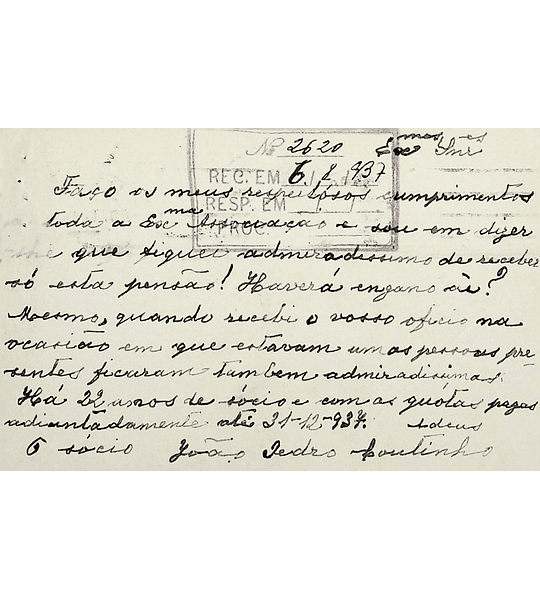 Nº 2620 Exmos Snrs
REC. EM 6/2/937
Faço os meus respeitosos cumprimentos
RESP. EM
toda a Exma Associação e sou em dizer
PROC.
que fiquei admiradissimo de receber
só esta pensão! Haverá engano ai?
Mesmo, quando recebi o vosso oficio na
ocasião em que estavam umas pessoas pre
sentes ficaram tambem admiradisimas.
Há 22 anos de sócio e com as quótas pagas
adiantádamente até 31-12-937. Adeus
O sócio João Pedro Coutinho